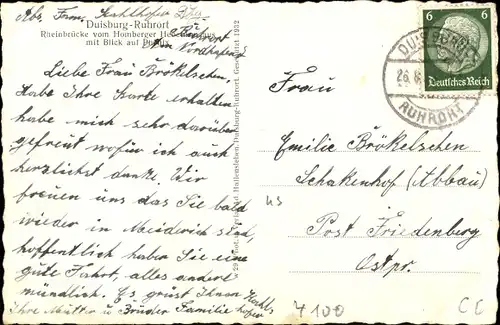 Abs. Frau Kahlhöfer
Duisburg-Ruhrort
Rheinbrücke vom Homberger
mit Blick auf
Ruhrort
Liebe Frau Brökelschen.
Habe Ihre Karte erhalten
habe mich sehr darüber
gefreut wofür ich auch
herzlichst danke. Wir
freuen uns das Sie bald
wieder in Meiderich sind,
hoffentlich haben Sie eine
gute Fahrt, alles andere
mündlich. Es grüst Ihnen
Ihre Mutter u Brüder Familie
Frau
Emilie Brökelschen
Schakenhof (Abbau)
Post Friedenberg
Ostpr.
6 6
Deutsches Reich
DUISBURG
26.
RUHRORT
Duisburg-Ruhrort. Gesetzlich 1932
us
4100